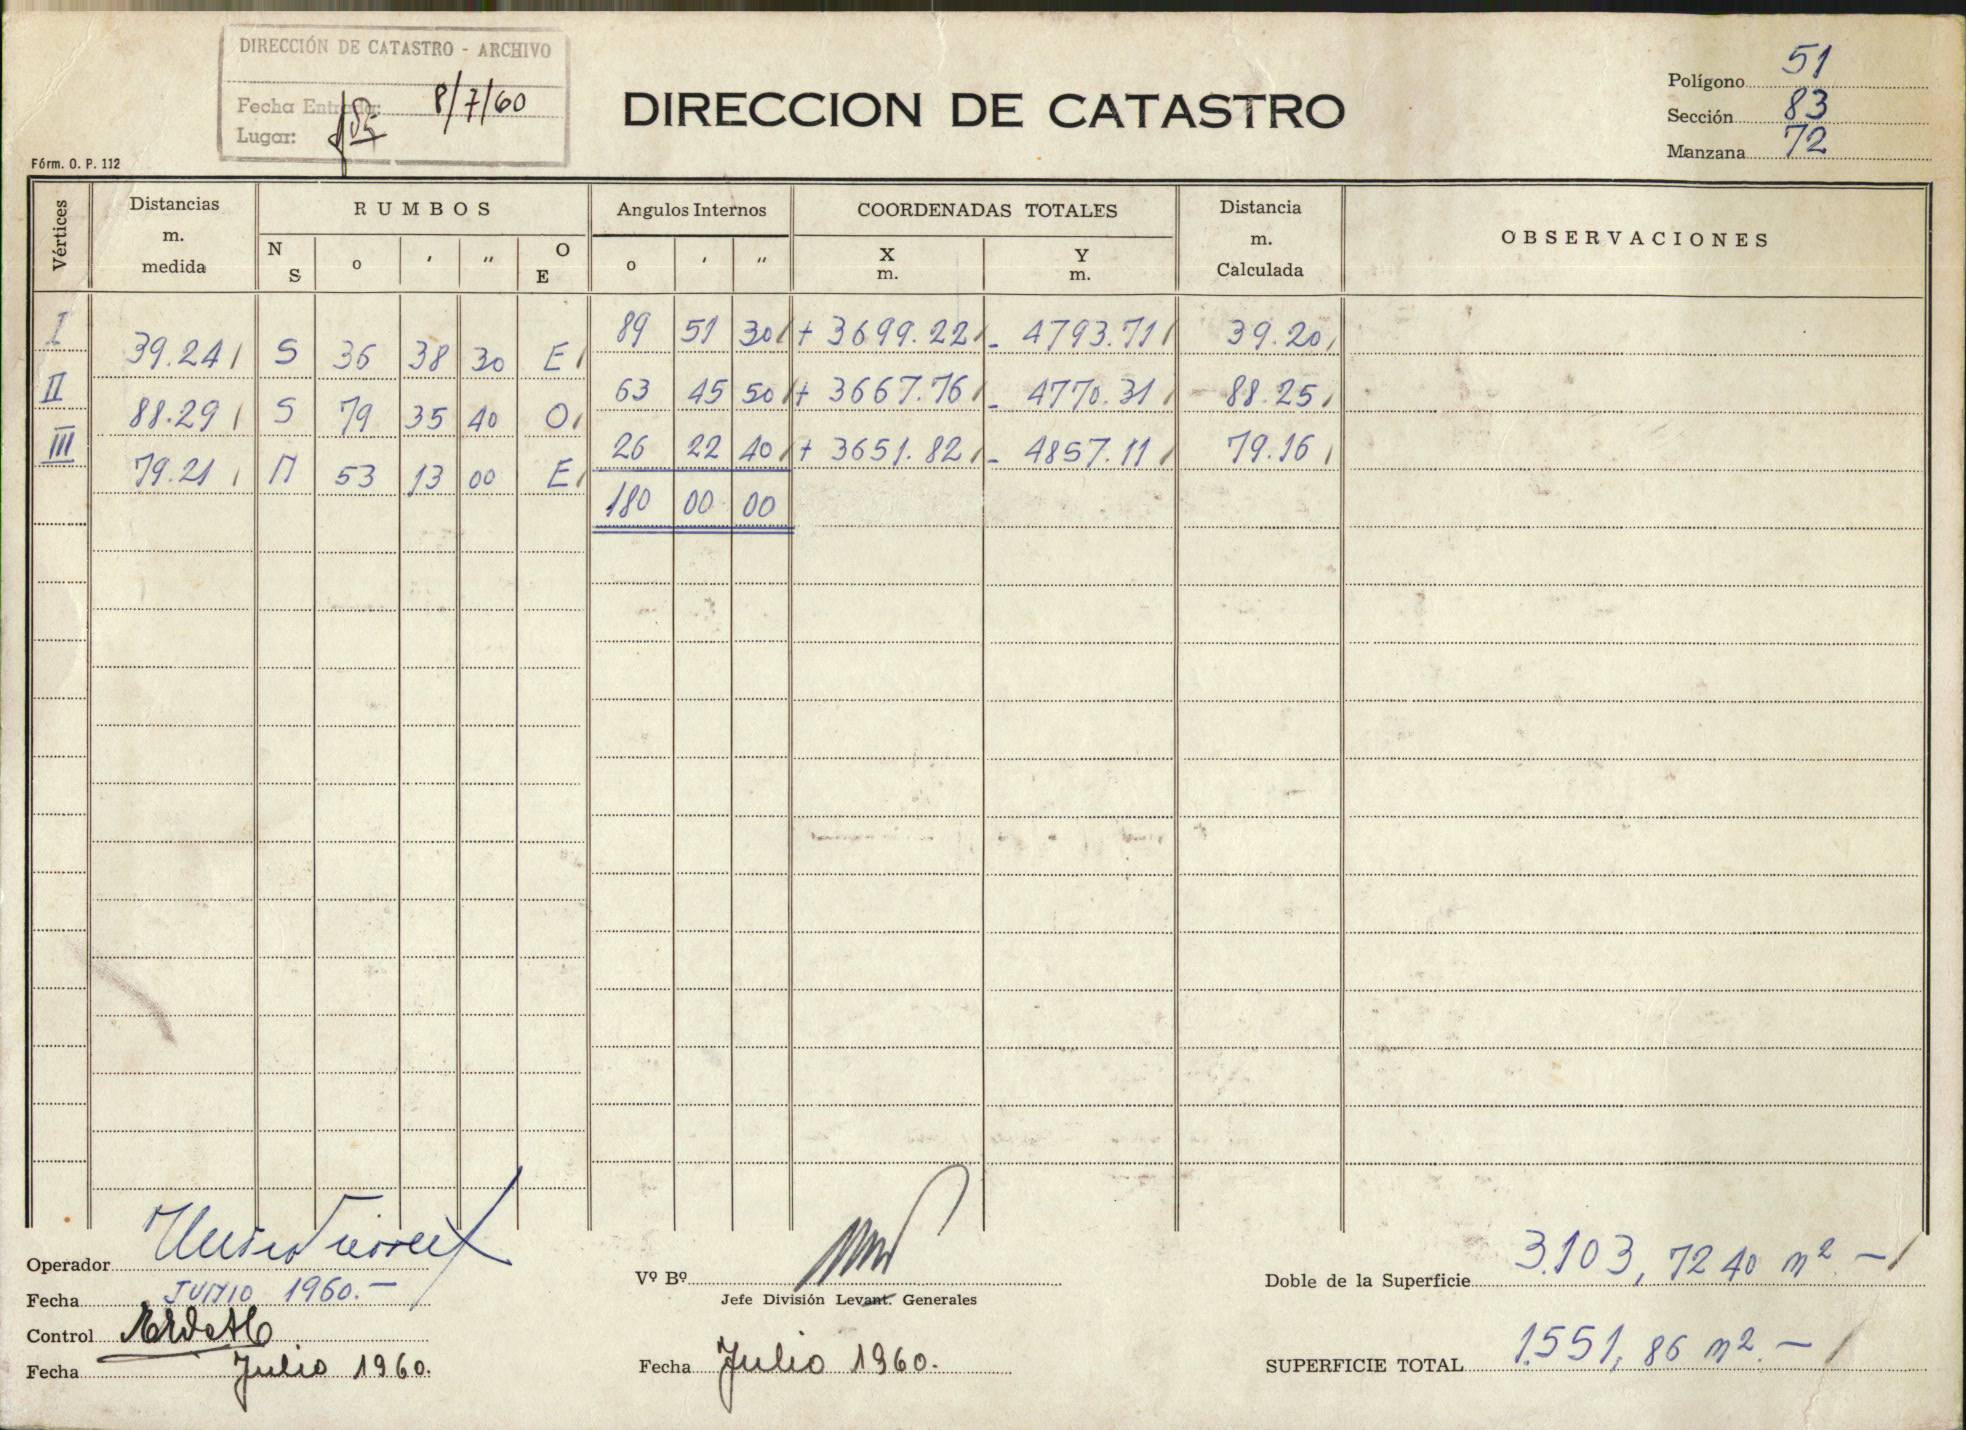 DIRECCIÓN DE CATASTRO - ARCHIVO
Fecha Entrada: 8/7/60
Lugar:
DIRECCION DE CATASTRO
Polígono 51
Sección 83
Manzana 72
Fórm. O. P. 112
Vértices
Distancias
m.
medida
RUMBOS
N
S
o
'
"
O
E
Angulos Internos
o
'
"
COORDENADAS TOTALES
X
m.
Y
m.
Distancia
m.
Calculada
OBSERVACIONES
I 89 51 30 + 3699.22 - 4793.71 39.20
39.24 S 36 38 30 E
II 63 45 50 + 3667.76 - 4770.31 88.25
88.29 S 79 35 40 O
III 26 22 40 + 3651.82 - 4857.11 79.16
79.21 N 53 13 00 E
180 00 00
Operador
Fecha JUNIO 1960.-
Control
Fecha Julio 1960.
Vº Bº
Jefe División Levant. Generales
Fecha Julio 1960.
Doble de la Superficie 3.103, 7240 m² -
SUPERFICIE TOTAL 1.551, 86 m². -